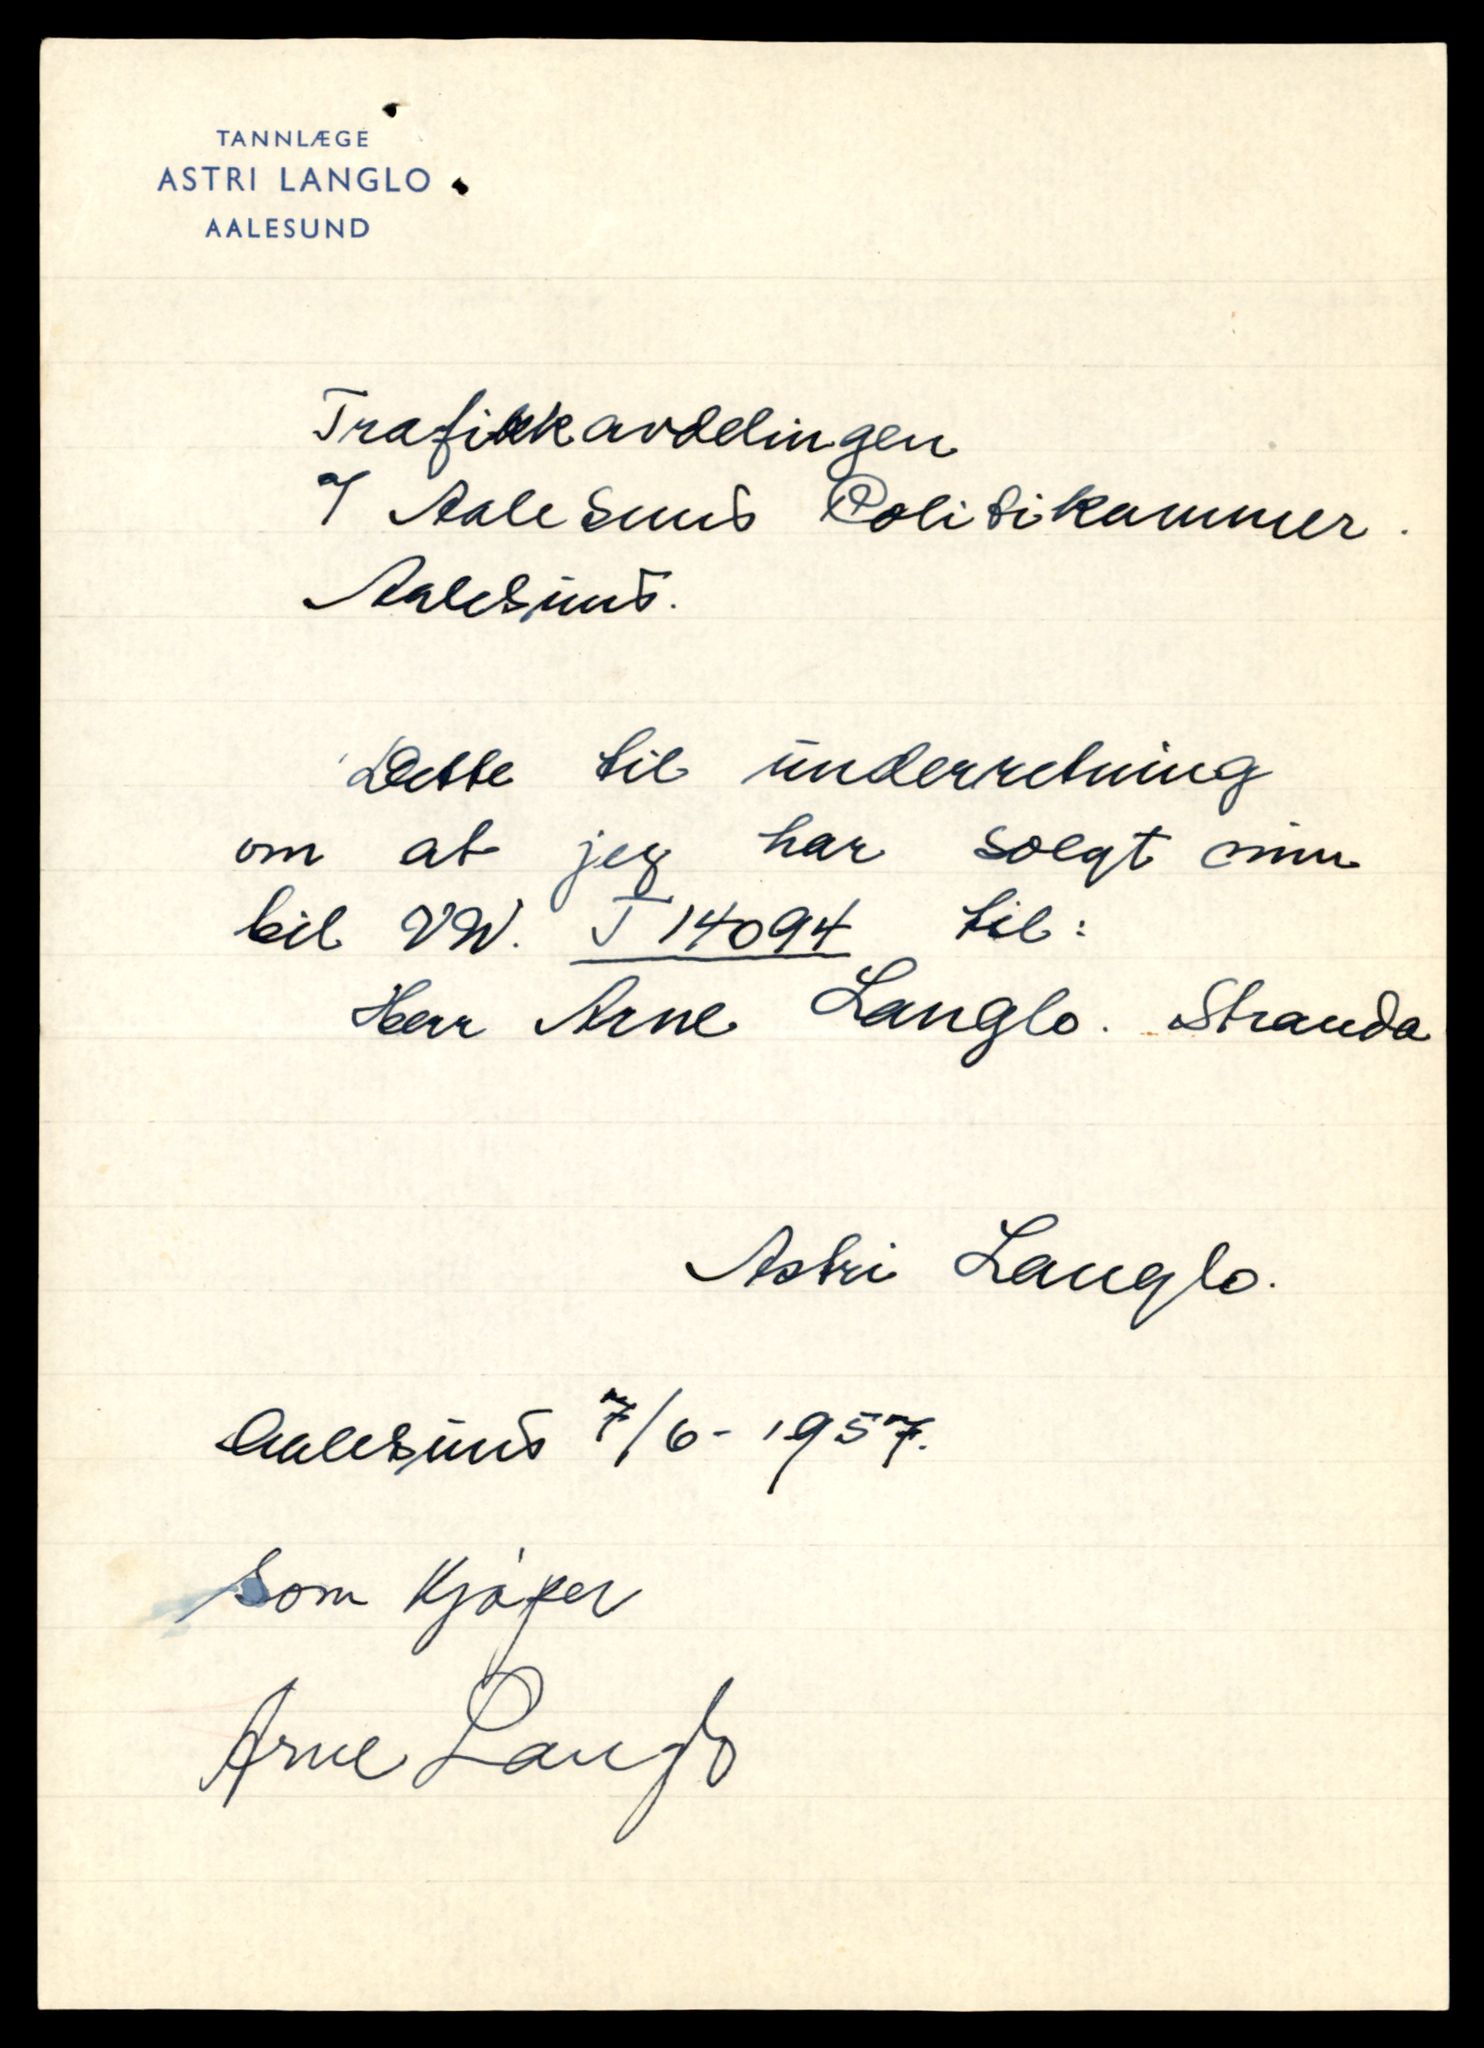 TANNLÆGE
ASTRI LANGLO
AALESUND
Trafikkavdelingen
Aalesund Politikammer.
Aalesund.
Dette til underretning
om at jeg har solgt min
bil VW. T 14094 til:
Herr Arne Langlo. Stranda
Astri Langlo.
Aalesund 7/6-1957.
Som kjøper
Arne Langlo